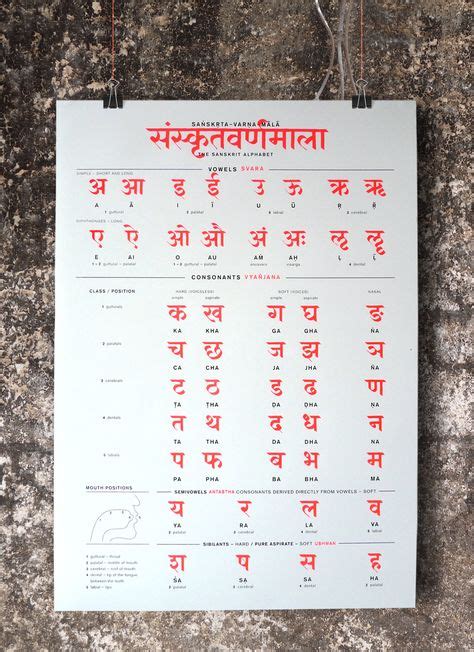 SAṄSKṚTA–VARṆA–MĀLĀ
संस्कृतवर्णमाला
THE SANSKRIT ALPHABET
VOWELS SVARA
SIMPLE – SHORT AND LONG
अ आ इ ई उ ऊ ऋ ॠ
A Ā I Ī U Ū Ṛ Ṝ
1 guttural 2 palatal 5 labial 3 cerebral
DIPHTHONGES – LONG
ए ऐ ओ औ अं अः ऌ ॡ
E AI O AU AṀ AḤ Ḷ Ḹ
1 + 2 guttural – palatal anusvara visarga 4 dental
CONSONANTS VYAÑJANA
CLASS / POSITION HARD (VOICELESS) SOFT (VOICES) NASAL
simple aspirate simple aspirate
1 gutturals क ख ग घ ङ
KA KHA GA GHA ṄA
2 palatals च छ ज झ ञ
CA CHA JA JHA ÑA
3 cerebrals ट ठ ड ढ ण
ṬA ṬHA ḌA ḌHA ṆA
4 dentals त थ द ध न
TA THA DA DHA NA
5 labials प फ ब भ म
PA PHA BA BHA MA
MOUTH POSITIONS
SEMIVOWELS ANTAḤSTHA CONSONANTS DERIVED DIRECTLY FROM VOWELS – SOFT
य र ल व
YA RA LA VA
2 palatal 3 cerebral 4 dental 5 labial
SIBILANTS – HARD / PURE ASPIRATE – SOFT USHMAN
1 guttural – throat
2 palatal – middle of mouth
3 cerebral – roof of mouth
4 dental – tip of the tongue
between the teeth
5 labial – lips
श ष स ह
ŚA ṢA SA HA
2 palatal 3 cerebral 4 dental